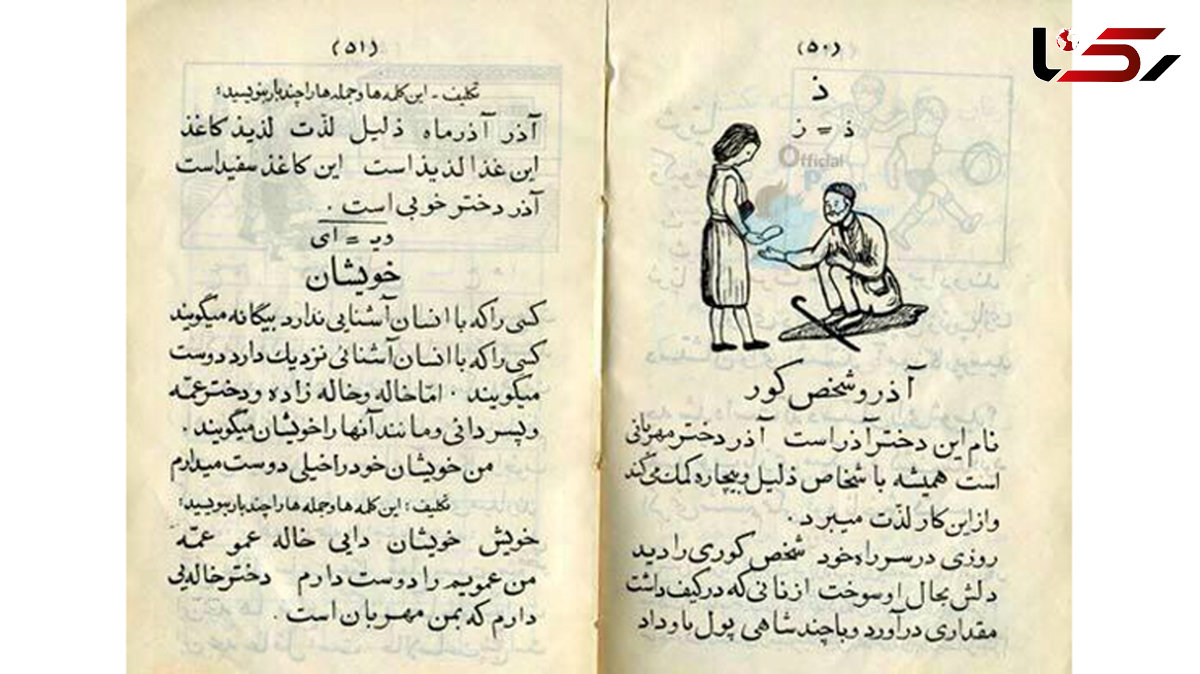 (۵۰)
ذ
ذ = ز
آذر و شخص کور
نام این دختر آذر است آذر دختر مهربانی
است همیشه با شخاص ذلیل و بیچاره کمك می کند
و از این کار لذّت میبرد .
روزی در سر راه خود شخص کوری را دید
دلش بحال او سوخت از نانی که در کیف داشت
مقداری در آورد و با چند شاهی پول باو داد
(۵۱)
تکلیف - این کلمه ها و جمله ها را چند بار بنویسید :
آذر آذر ماه ذلیل لذّت لذیذ کاغذ
این غذا لذیذ است این کاغذ سفید است
آذر دختر خوبی است .
ویـ = ای
خویشان
کسی را که با انسان آشنایی ندارد بیگانه میگویند
کسی را که با انسان آشنائی نزدیك دارد دوست
میگویند . امّا خاله و خاله زاده و دختر عمّه
و پسر دائی و مانند آنها را خویشان میگویند .
من خویشان خود را خیلی دوست میدارم
تکلیف : این کلمه ها و جمله ها را چند بار بنویسید :
خویش خویشان دایی خاله عمو عمّه
من عمویم را دوست دارم دختر خاله یی
دارم که بمن مهربان است .
رکنا
Official